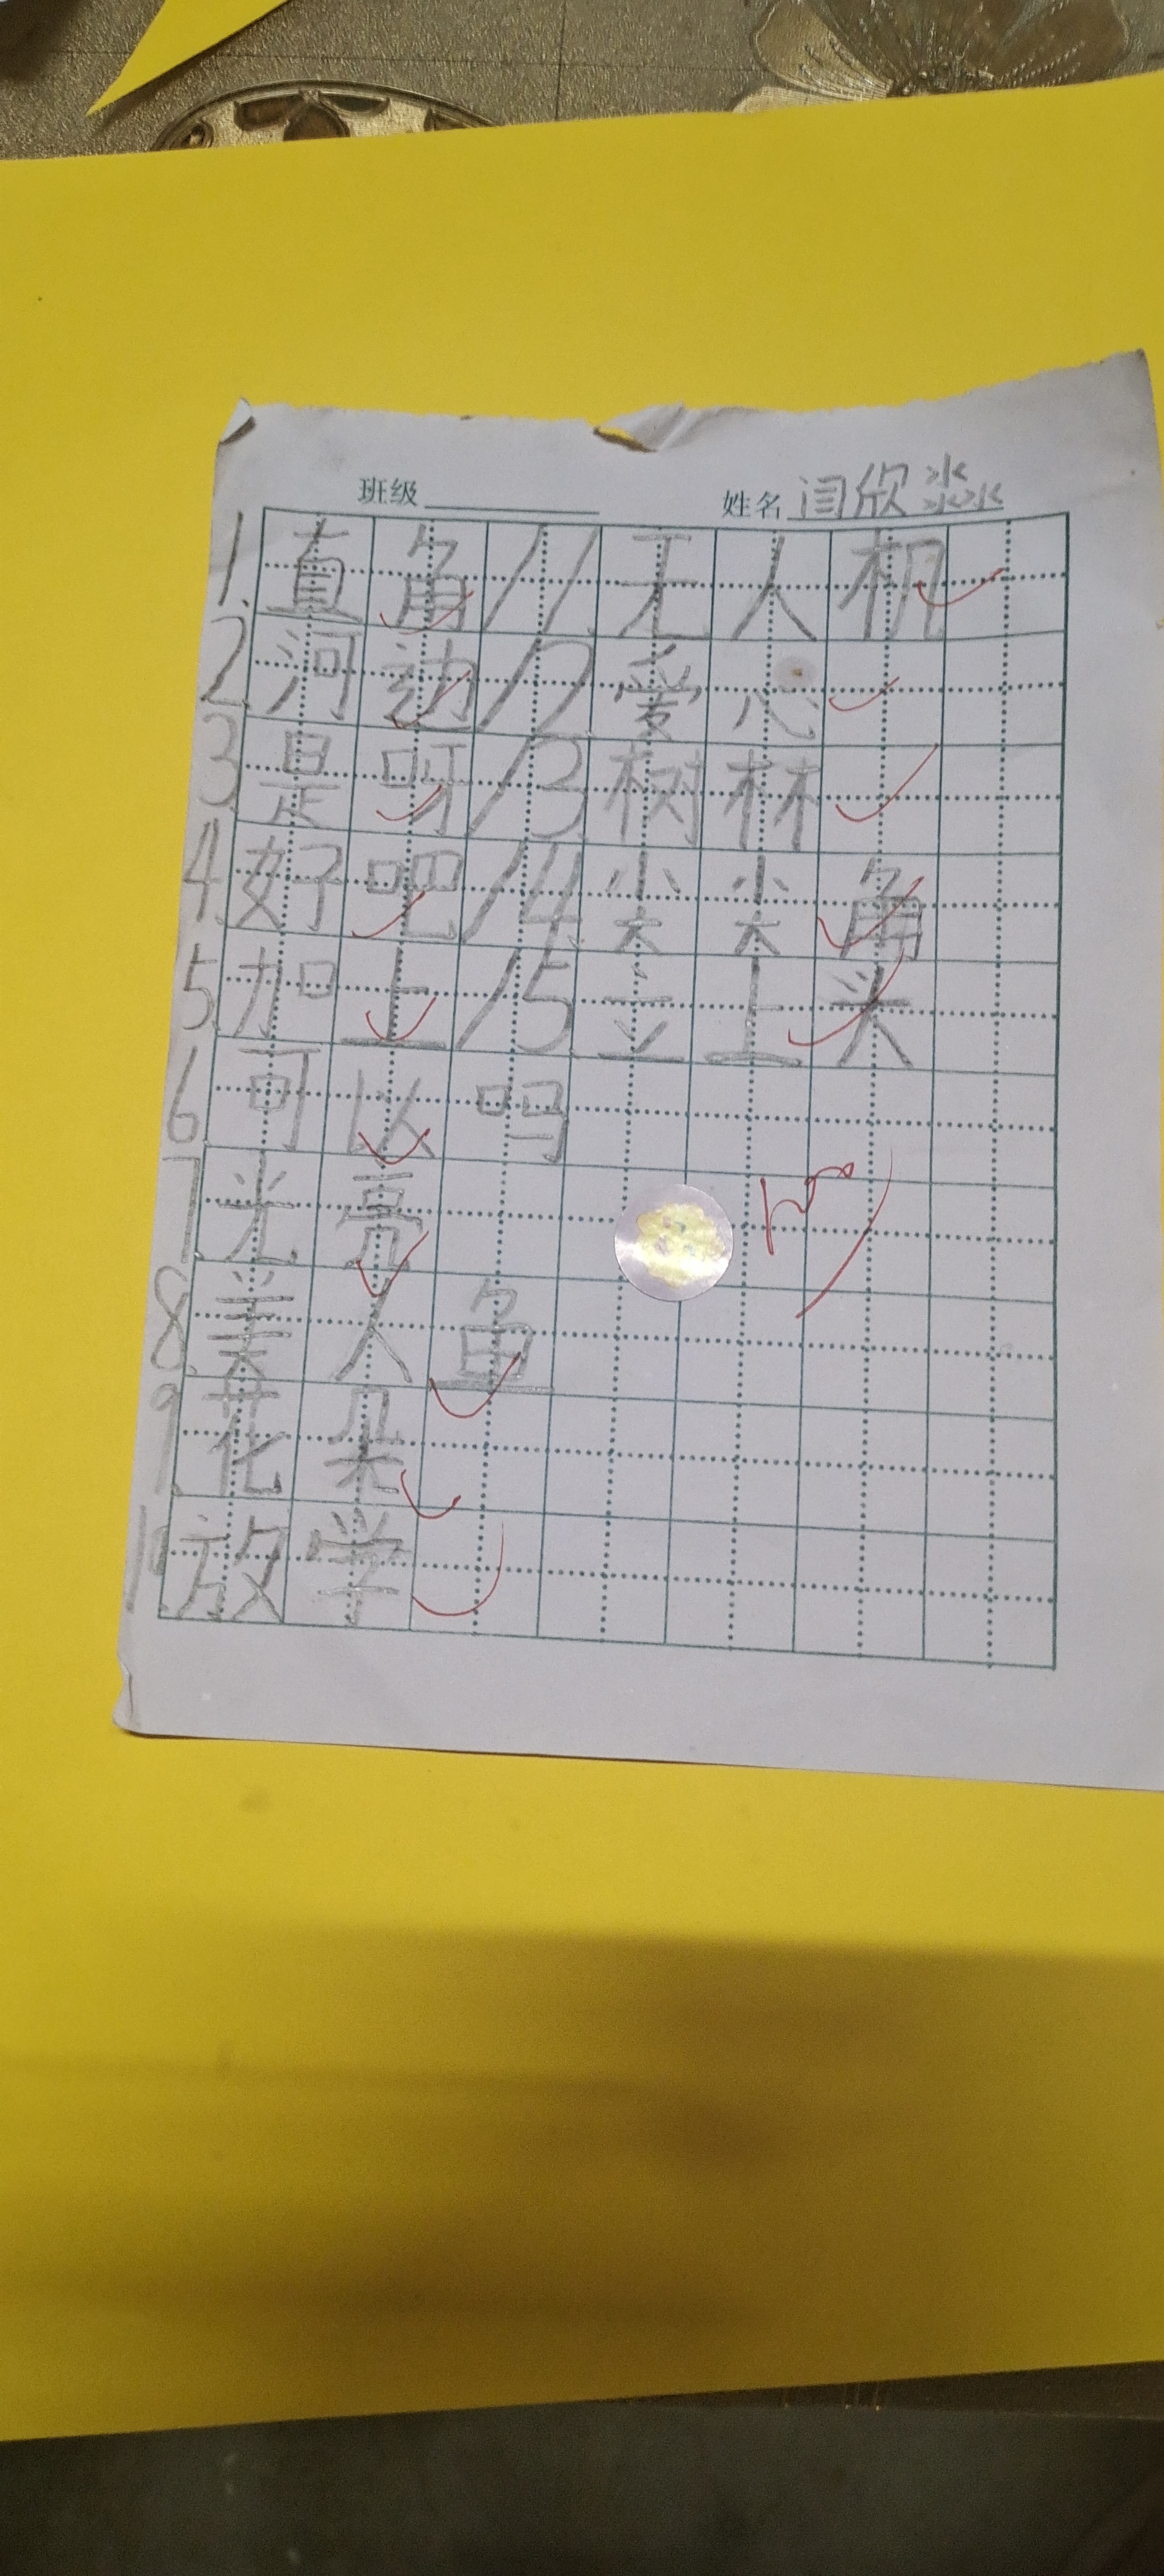 班级 姓名 闫欣淼
1.直角 11.无人机
2.河边 12 爱心
3.是呀 13.树林
4.好吧 14.尖尖角
5.加上 15 立上头
6 可以吗
7.光亮
8.美人鱼
9.花朵
10.放学
100